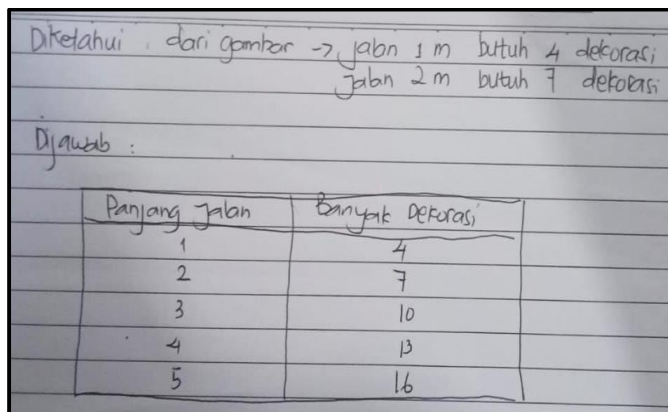 Diketahui : dari gambar → jalan 1 m butuh 4 dekorasi
jalan 2 m butuh 7 dekorasi
Dijawab :
Panjang Jalan Banyak Dekorasi
1 4
2 7
3 10
4 13
5 16